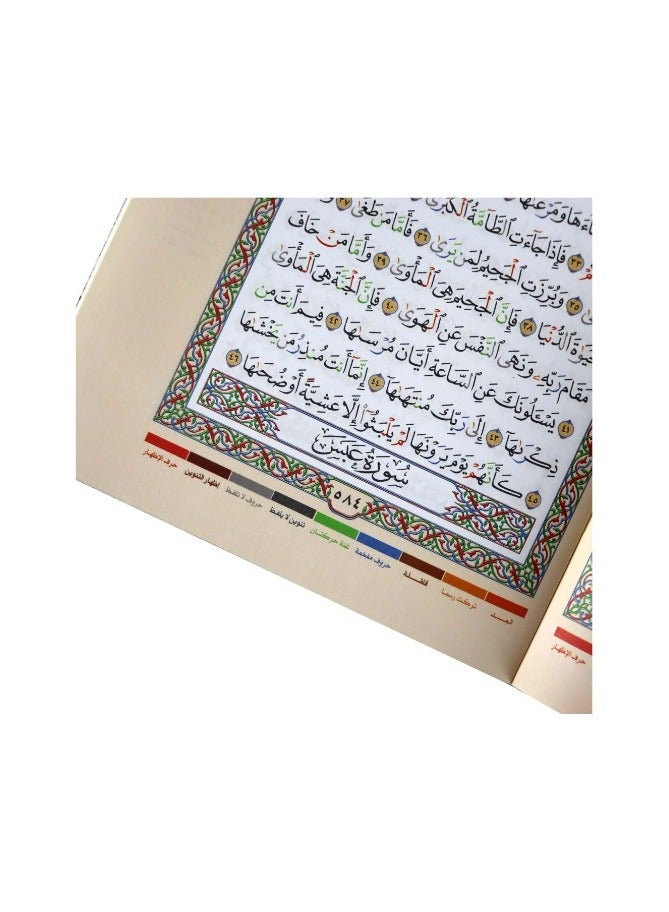 اءَهَا وَمَرْعَىٰهَا
٣٣ فَإِذَا جَآءَتِ ٱلطَّآمَّةُ ٱلْكُبْرَىٰ
٣٥ وَبُرِّزَتِ ٱلْجَحِيمُ لِمَن يَرَىٰ ٣٦ فَأَمَّا مَن طَغَىٰ ٣٧
ٱلدُّنْيَا ٣٨ فَإِنَّ ٱلْجَحِيمَ هِىَ ٱلْمَأْوَىٰ ٣٩ وَأَمَّا مَنْ خَافَ
مَقَامَ رَبِّهِۦ وَنَهَى ٱلنَّفْسَ عَنِ ٱلْهَوَىٰ ٤٠ فَإِنَّ ٱلْجَنَّةَ هِىَ ٱلْمَأْوَىٰ
٤١ يَسْـَٔلُونَكَ عَنِ ٱلسَّاعَةِ أَيَّانَ مُرْسَىٰهَا ٤٢ فِيمَ أَنتَ مِن
ذِكْرَىٰهَآ ٤٣ إِلَىٰ رَبِّكَ مُنتَهَىٰهَآ ٤٤ إِنَّمَآ أَنتَ مُنذِرُ مَن يَخْشَىٰهَا
٤٥ كَأَنَّهُمْ يَوْمَ يَرَوْنَهَا لَمْ يَلْبَثُوٓا۟ إِلَّا عَشِيَّةً أَوْ ضُحَىٰهَا ٤٦
سُورَةُ عَبَسَ
٥٨٤
المد
تركت رسما
قلقلة
حروف مفخمة
غنة حركتان
تنوين لا يلفظ
حروف لا تلفظ
إظهار التنوين
حرف الإظهار
حرف الإظهار